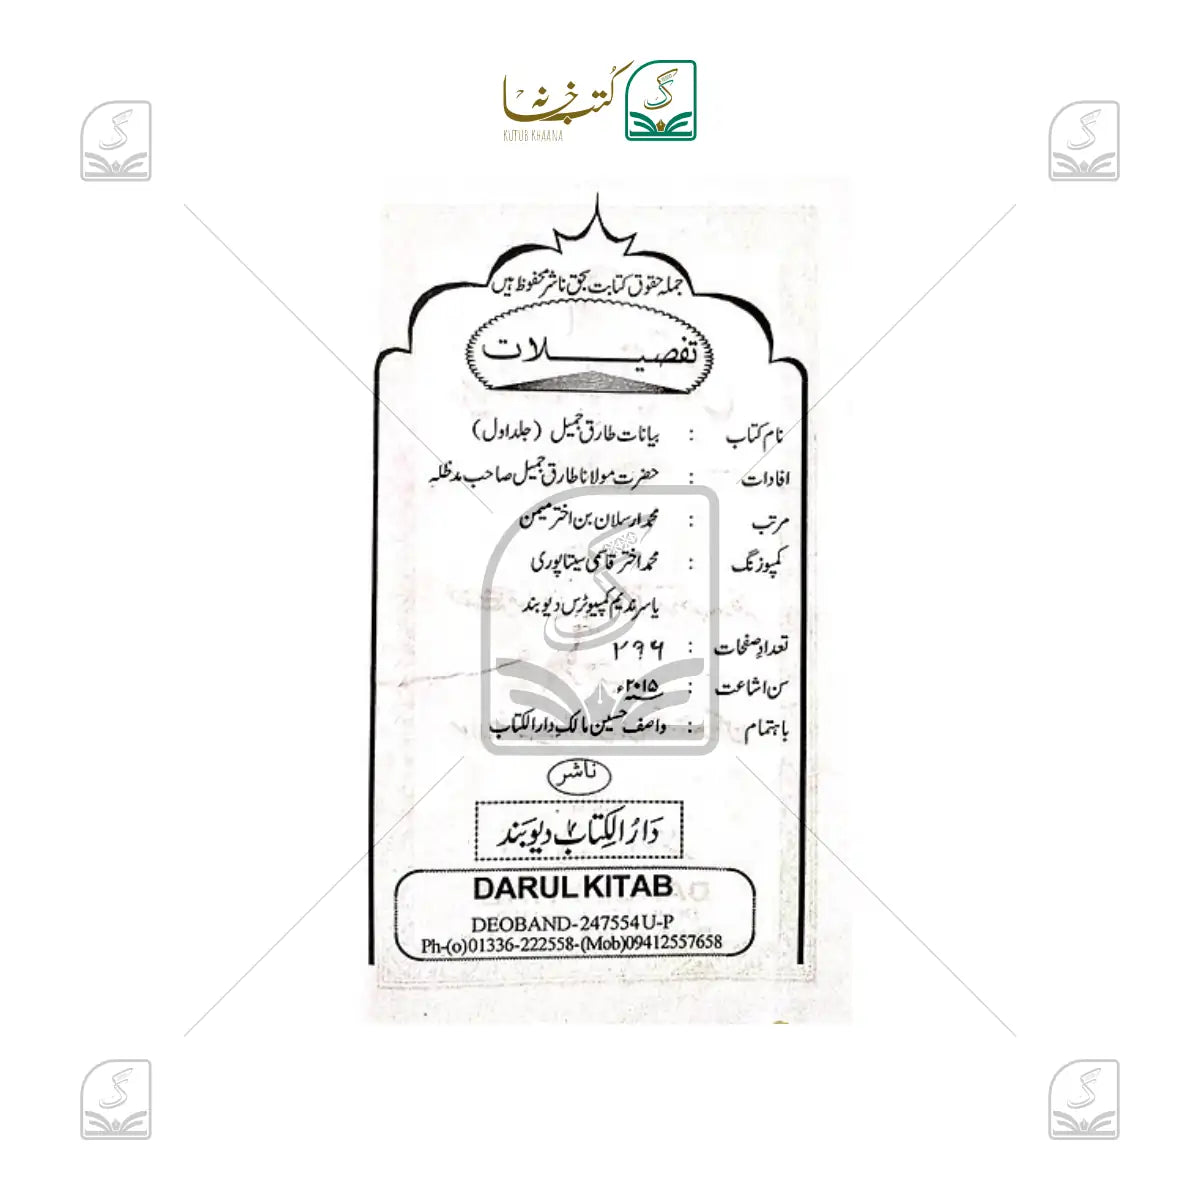 کتب خانہ
KUTUB KHAANA
جملہ حقوق کتابت بحق ناشر محفوظ ہیں
تفصیلات
نام کتاب : بیانات طارق جمیل (جلد اول)
افادات : حضرت مولانا طارق جمیل صاحب مدظلہ
مرتب : محمد ارسلان بن اختر میمن
کمپوزنگ : محمد اختر قاسمی سیتاپوری
یاسر ندیم کمپیوٹرس دیوبند
تعداد صفحات : ۲۹۶
سن اشاعت : ۲۰۱۵ء
باہتمام : واصف حسین مالک دارالکتاب
ناشر
دَارُ الکِتَاب دیوبَند
DARUL KITAB
DEOBAND-247554 U-P
Ph-(o)01336-222558-(Mob)09412557658